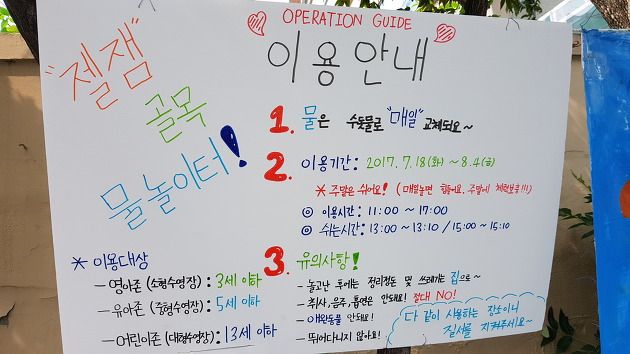 OPERATION GUIDE
이용안내
"젤잼"
골목
물놀이터!
1. 물은 수돗물로 "매일" 교체되요~
2. 이용기간: 2017. 7. 18(화) ~ 8. 4(금)
* 주말은 쉬어요! (매일놀면 힘들어요, 주말에 체력보충!!!)
◎ 이용시간: 11:00 ~ 17:00
◎ 쉬는시간: 13:00 ~ 13:10 / 15:00 ~ 15:10
* 이용대상
- 영아존 (소형수영장): 3세 이하
- 유아존 (중형수영장): 5세 이하
- 어린이존 (대형수영장): 13세 이하
3. 유의사항!
- 놀고난 후에는 정리정돈 및 쓰레기는 집으로~
- 취사, 음주, 흡연은 안돼요! 절대 NO!
- 애완동물 안돼요!
- 뛰어다니지 않아요!
다 같이 사용하는 장소이니
질서를 지켜주세요~